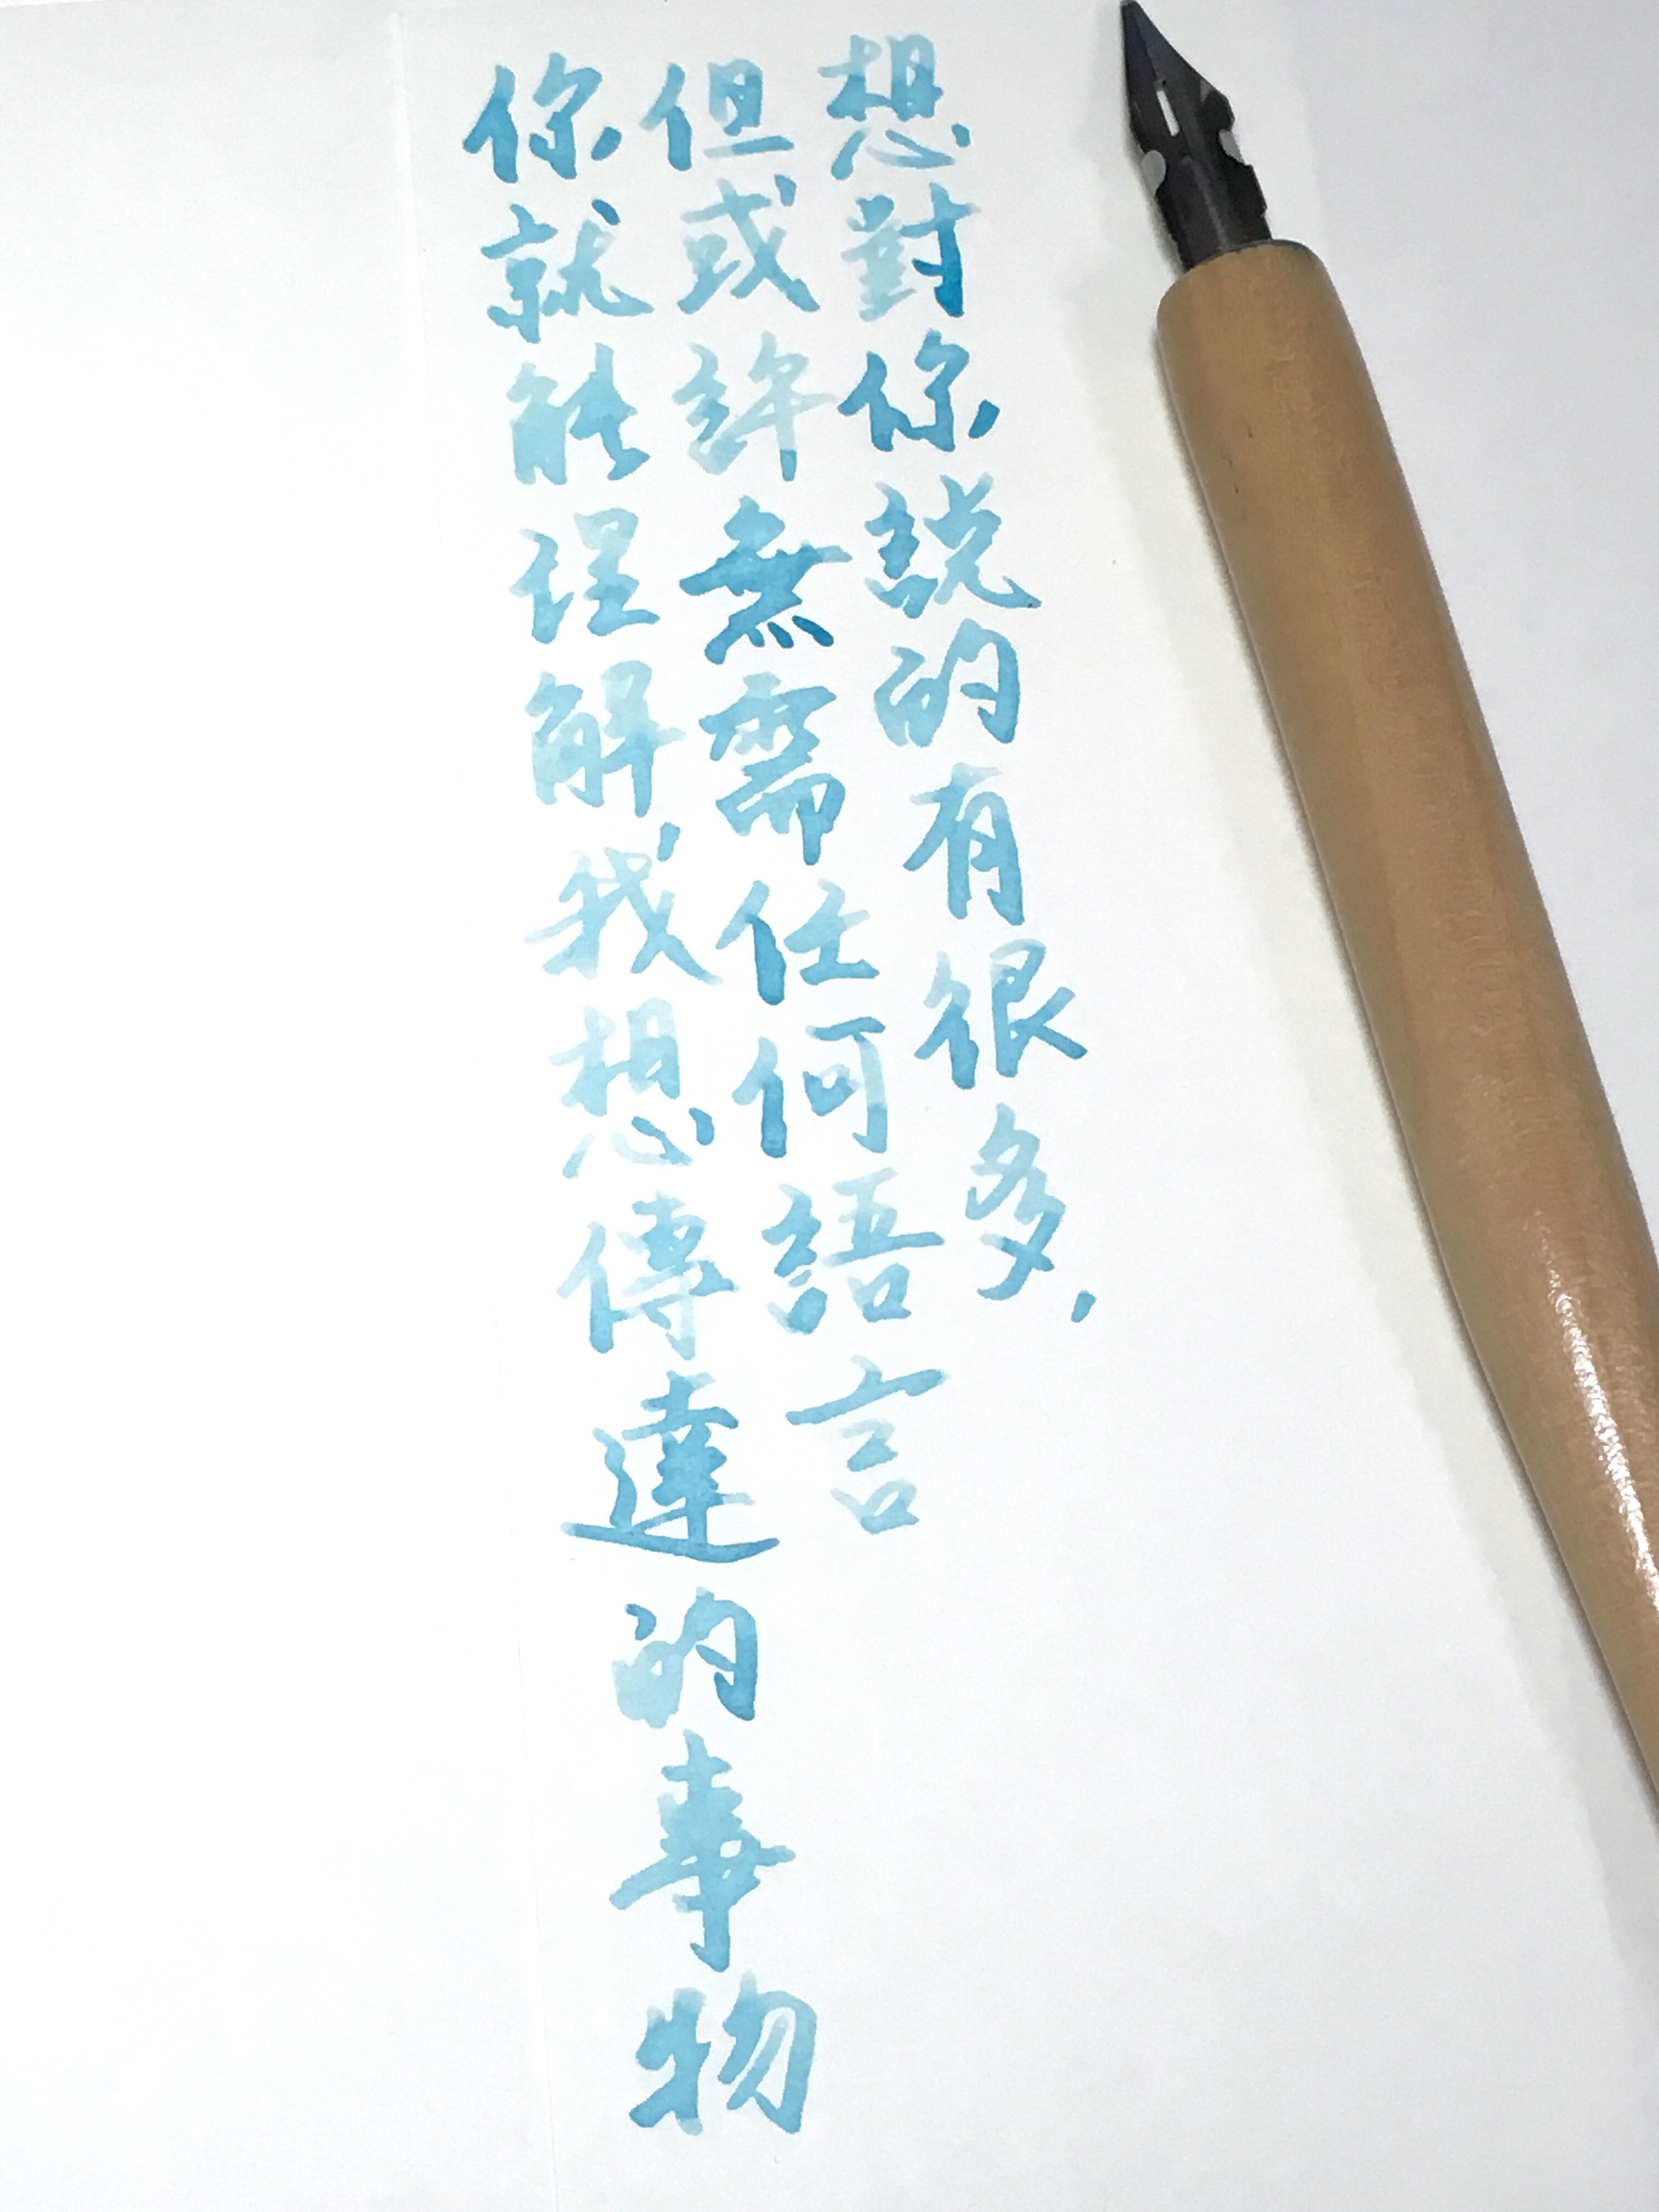 想對你說的有很多，
但或許無需任何語言
你就能理解我想傳達的事物